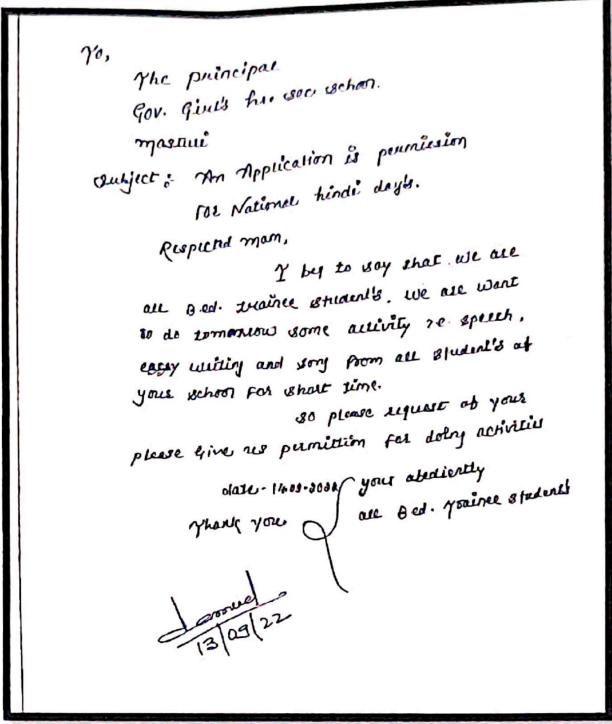 To,
The principal
Gov. Girl's hr. sec. school.
Subject : An Application is permission
for National hindi day's.
Respected mam,
I beg to say that we are
all B.ed. trainee student's. we are want
to do tomorrow some activity i.e. speech,
eassy writing and song from all student's of
your school for short time.
so please request of your
please Give us permittion for doing activities
date - 14-09-2022 your abediently
Thank you all B.ed. Trainee Students
13/09/22